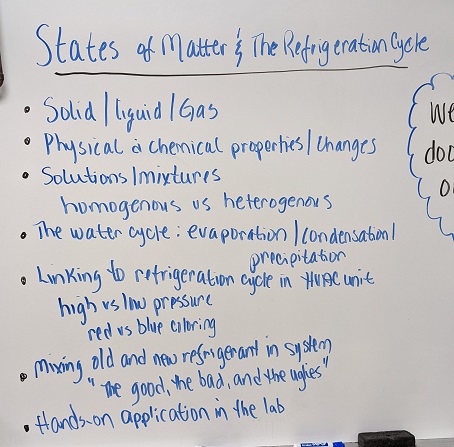 States of Matter & The Refrigeration Cycle
• Solid/liquid/Gas
• Physical & chemical properties/changes
• Solutions/mixtures
homogenous vs heterogenous
• The water cycle: evaporation/condensation/
precipitation
• Linking to refrigeration cycle in HVAC unit
high vs low pressure
red vs blue coloring
• Mixing old and new refrigerant in system
"The good, the bad, and the uglies"
• Hands-on application in the lab
We